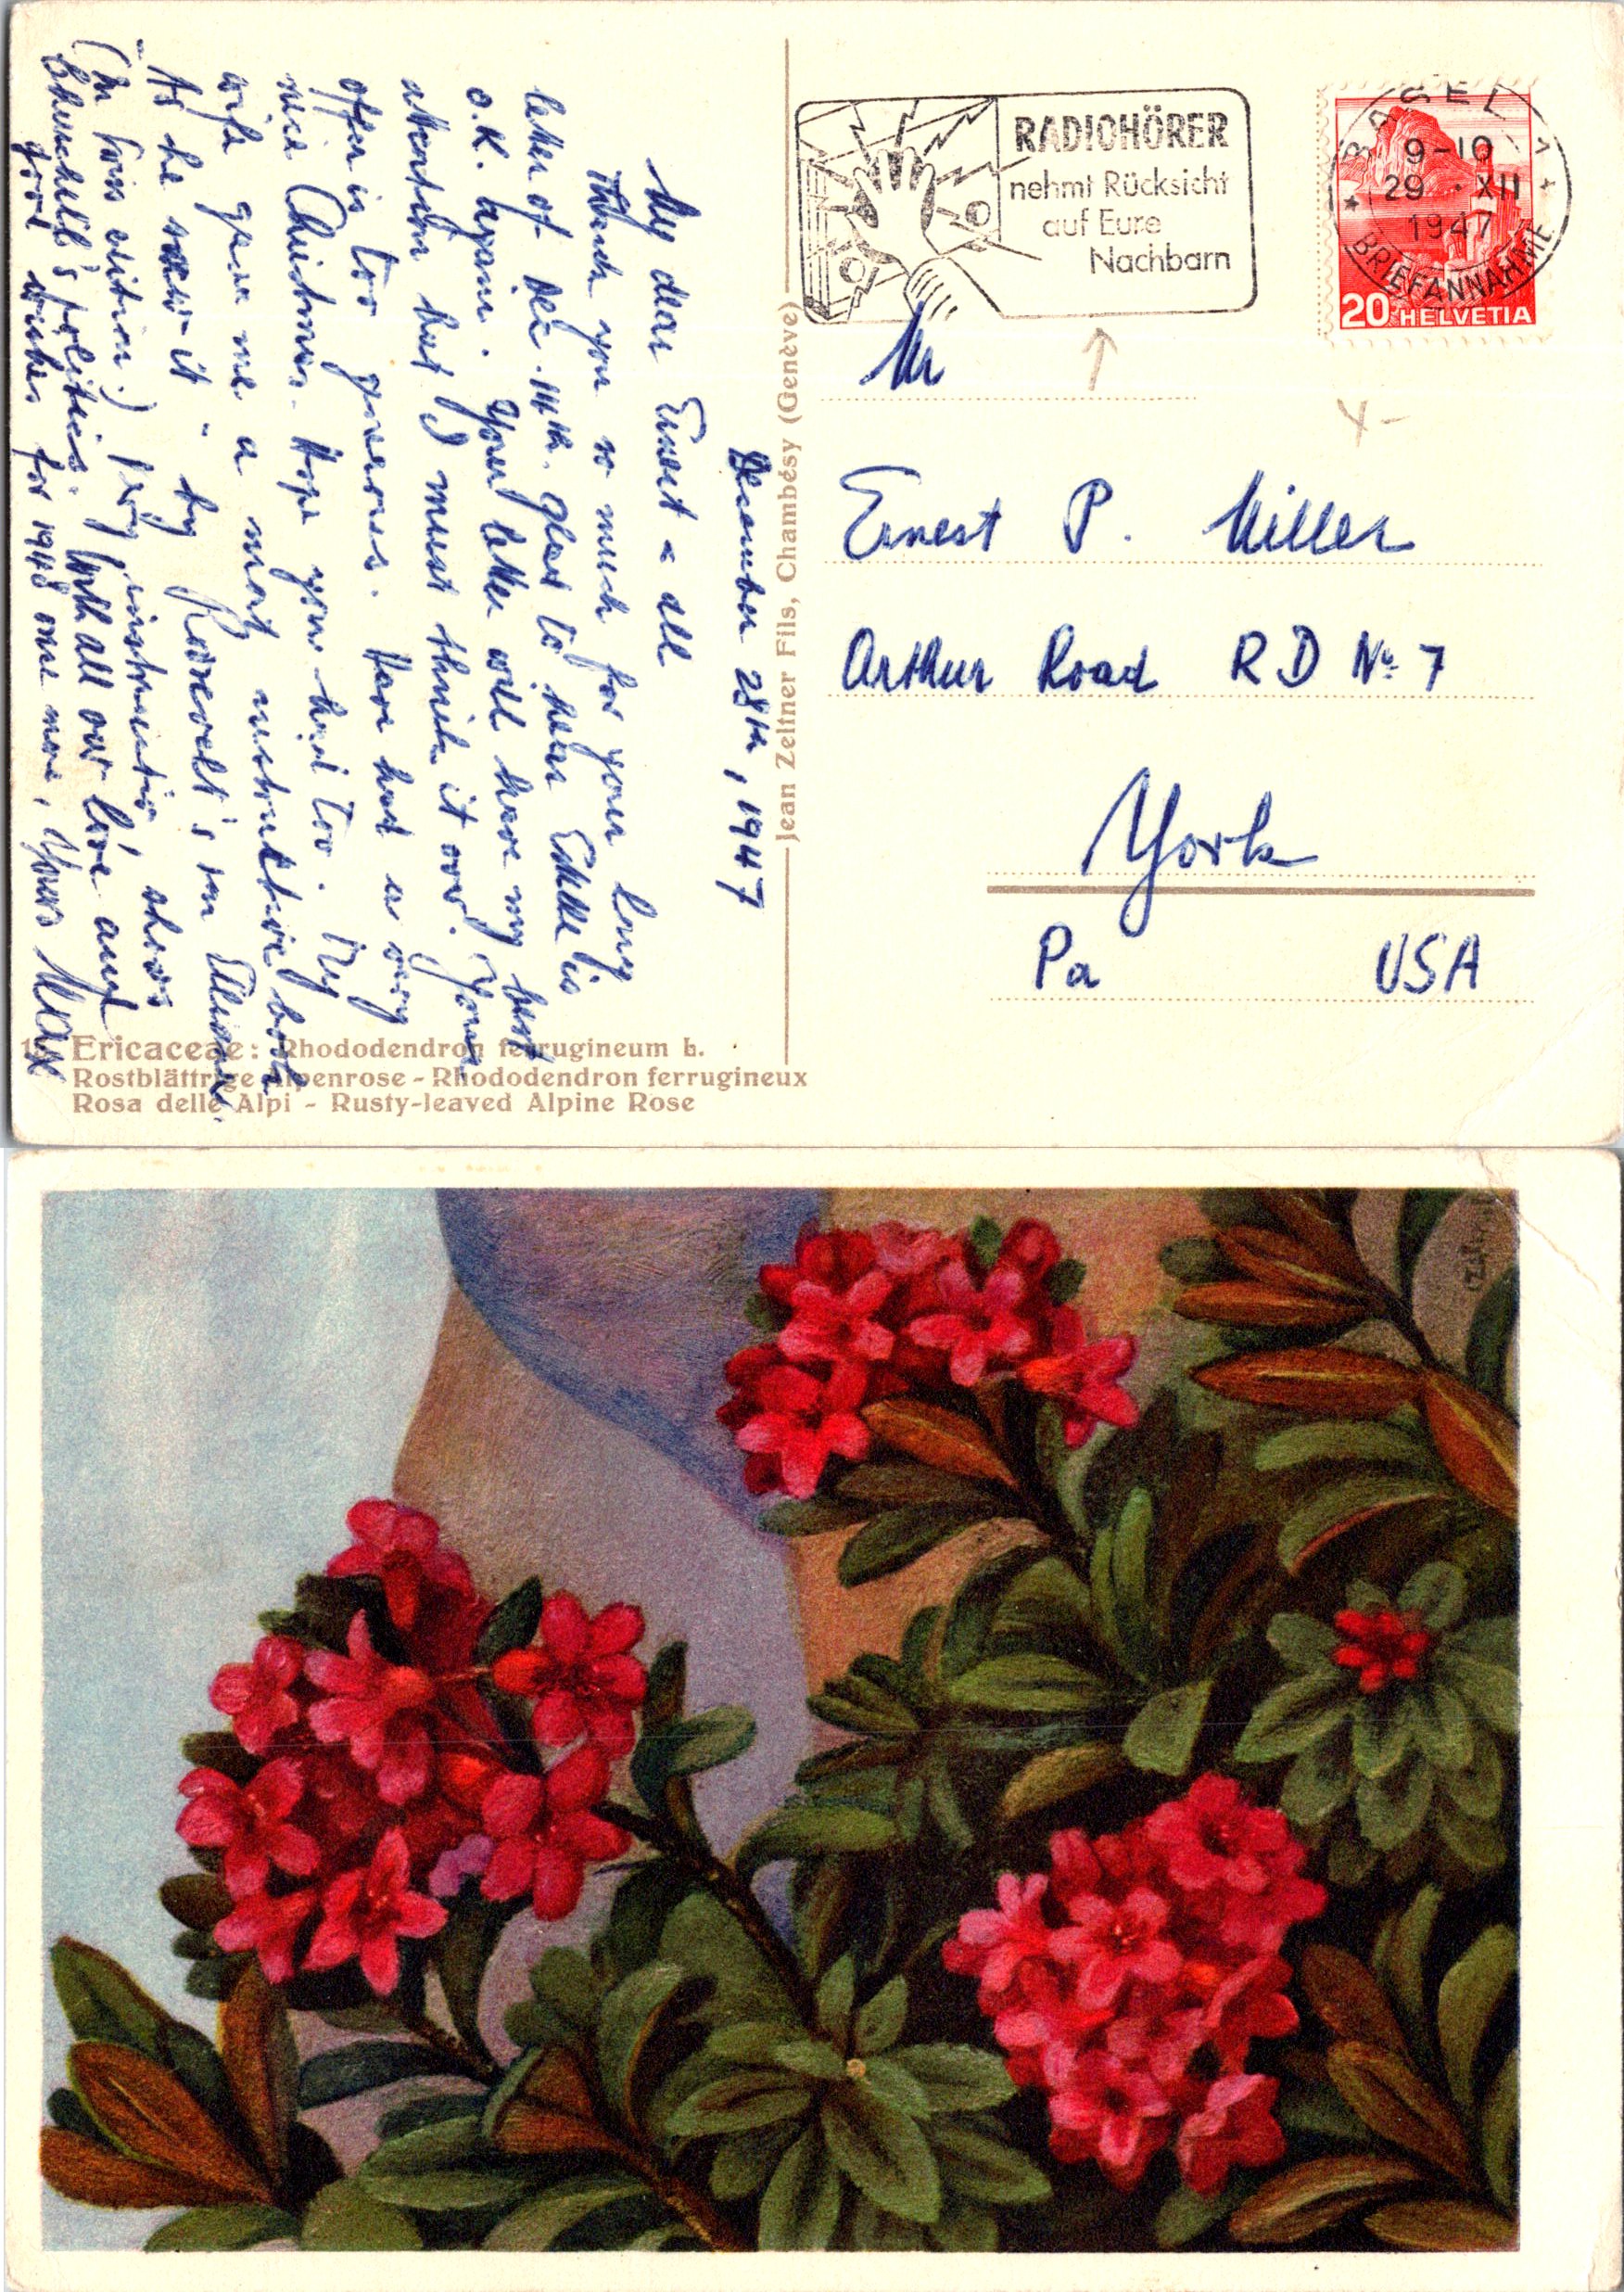 December 28th, 1947
My dear Ernest & all
Thank you so much for your long
letter of Dec. 14th. Glad to hear Estelle is
O.K. again. Your letter will have my best
attention but I must think it over. Your
offer is too generous. Have had a very
nice Christmas. Hope you had too. My
wife gave me a most instructive book
"As he saw it" by Roosevelt's son Elliott.
(In Swiss edition.) Very instructive, shows
Churchill's politics. With all our love and
good wishes for 1948 once more, Yours Max
Ericaceae: Rhododendron ferrugineum L.
Rostblättrige Alpenrose - Rhododendron ferrugineux
Rosa delle Alpi - Rusty-leaved Alpine Rose
Jean Zeltner Fils, Chambésy (Genève)
RADIOHÖRER
nehmt Rücksicht
auf Eure
Nachbarn
BASEL 1
9-10
29. XII
1947
BRIEFANNAHME
20 HELVETIA
Mr
Ernest P. Miller
Arthur Road RD No 7
York
Pa USA